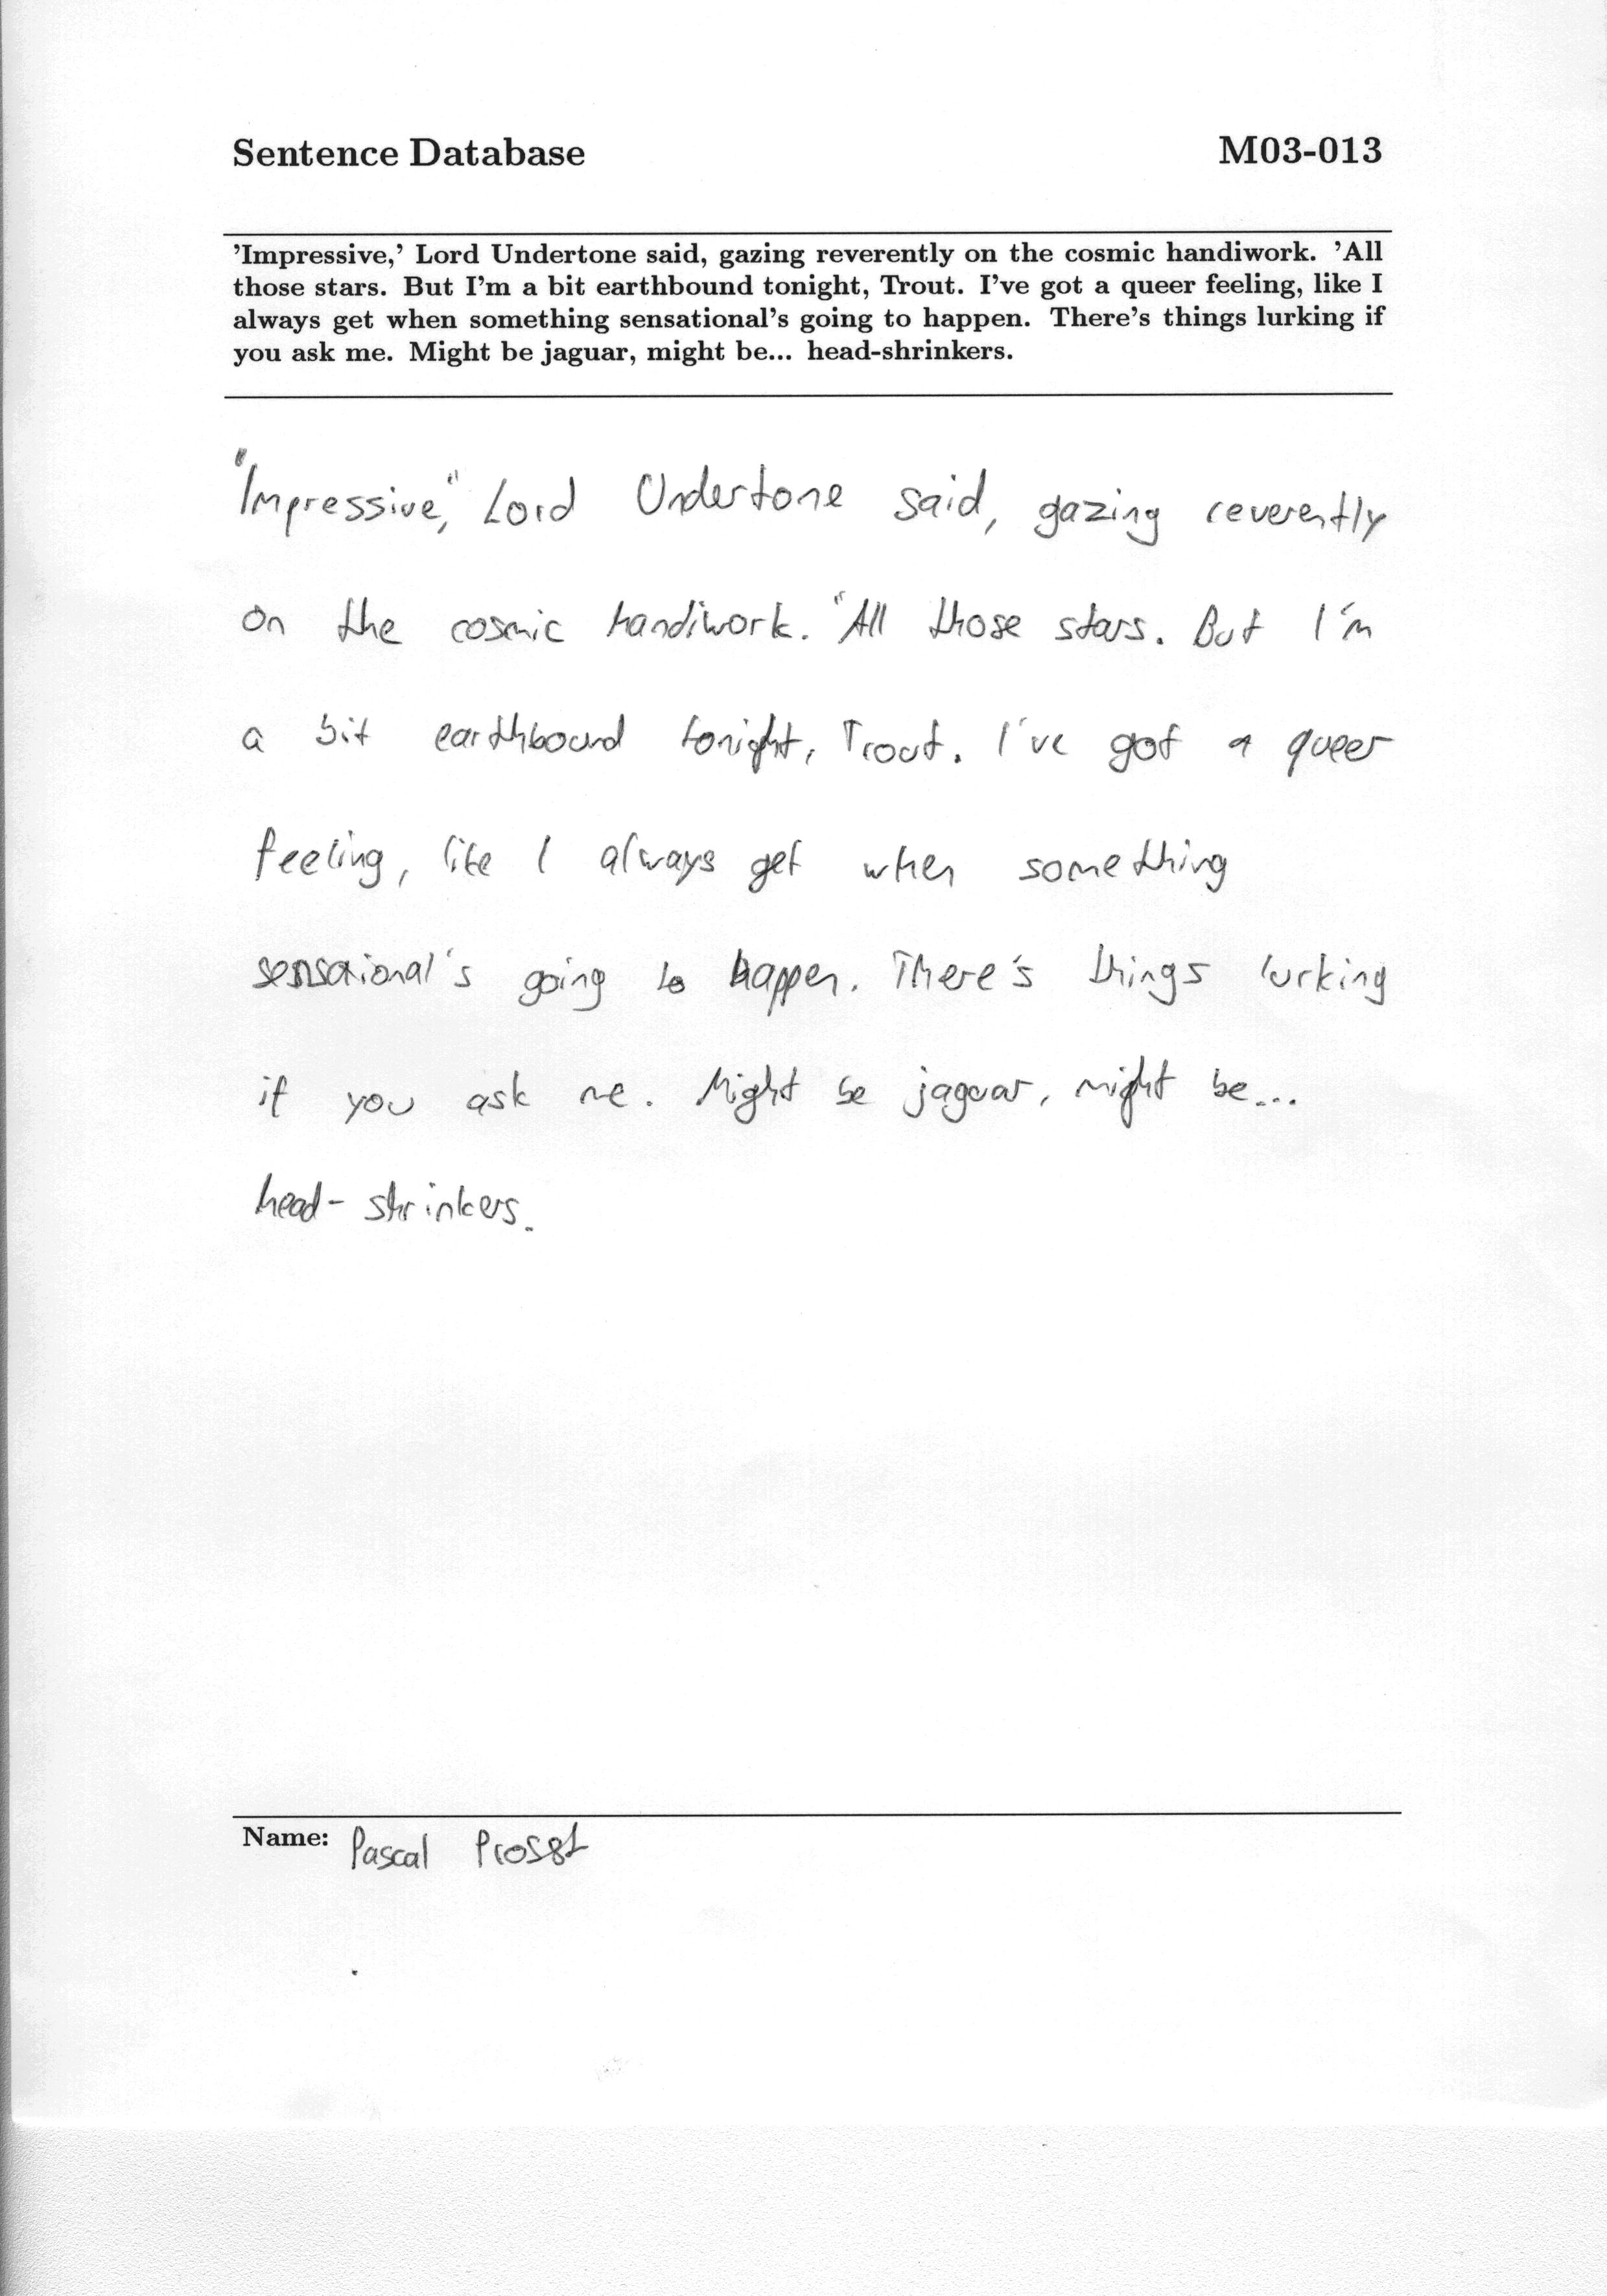 Sentence Database M03-013
'Impressive,' Lord Undertone said, gazing reverently on the cosmic handiwork. 'All
those stars. But I'm a bit earthbound tonight, Trout. I've got a queer feeling, like I
always get when something sensational's going to happen. There's things lurking if
you ask me. Might be jaguar, might be... head-shrinkers.
"Impressive," Lord Undertone said, gazing reverently
on the cosmic handiwork. "All those stars. But I'm
a bit earthbound tonight, Trout. I've got a queer
feeling, like I always get when something
sensaional's going to happen. There's things lurking
if you ask me. Might be jaguar, might be...
head-shrinkers.
Name: Pascal